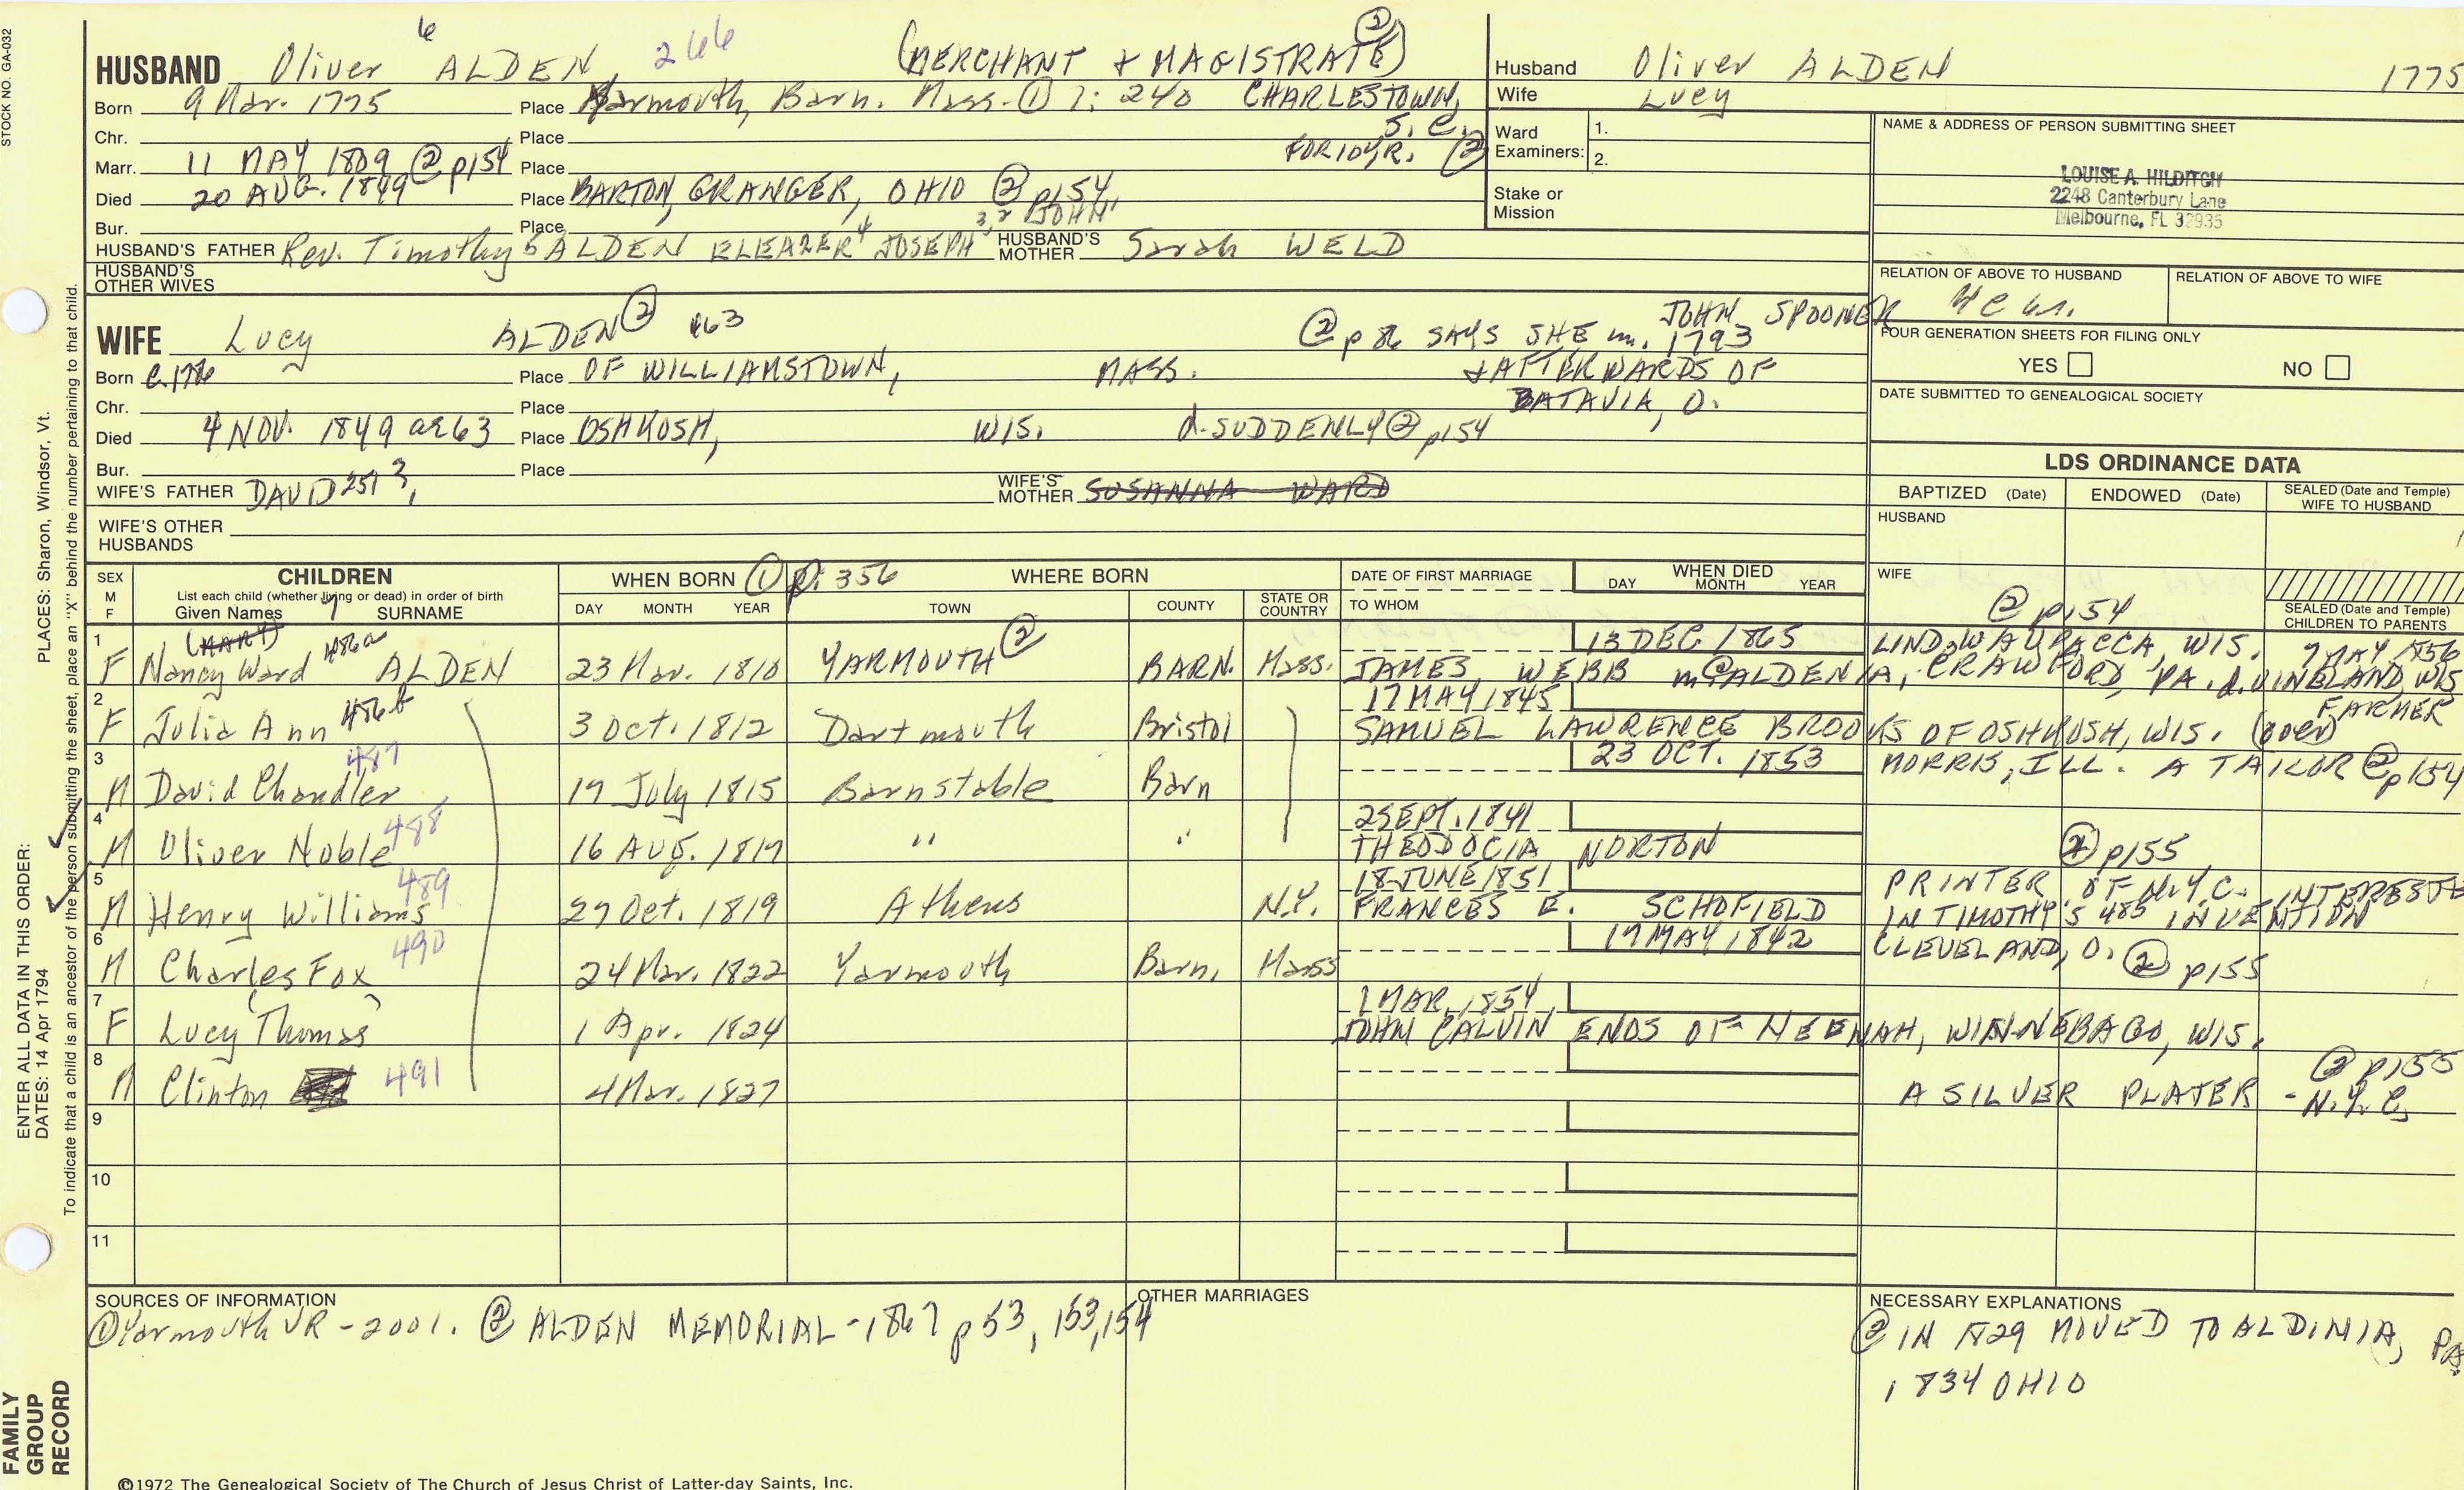 STOCK NO. GA-032
HUSBAND Oliver 6 ALDEN 266 (MERCHANT + MAGISTRATE) ②
Born 9 Mar. 1775 Place Yarmouth, Barn. Mass. ① 1: 240 CHARLESTOWN, S.C.
Chr. Place FOR 10 YR. ②
Marr. 11 MAY 1809 ② p154 Place
Died 20 AUG. 1849 Place BARTON, GRANGER, OHIO ② p154
Bur. Place
HUSBAND'S FATHER Rev. Timothy 5 ALDEN ELEAZER 4 JOSEPH 3,2 JOHN 1 HUSBAND'S MOTHER Sarah WELD
HUSBAND'S OTHER WIVES
Husband Oliver ALDEN 1775
Wife Lucy
Ward Examiners: 1.
2.
Stake or Mission
NAME & ADDRESS OF PERSON SUBMITTING SHEET
LOUISE A. HILDITCH
2248 Canterbury Lane
Melbourne, FL 32935
RELATION OF ABOVE TO HUSBAND
RELATION OF ABOVE TO WIFE
FOUR GENERATION SHEETS FOR FILING ONLY
YES NO
DATE SUBMITTED TO GENEALOGICAL SOCIETY
WIFE Lucy ALDEN ② 463 ② p 86 SAYS SHE m. 1793 JOHN SPOONER
Born c.1786 Place OF WILLIAMSTOWN, MASS. + AFTERWARDS OF
Chr. Place BATAVIA, O.
Died 4 NOV. 1849 ae 63 Place OSHKOSH, WIS. d. SUDDENLY ② p154
Bur. Place
WIFE'S FATHER DAVID 251 3, WIFE'S MOTHER SUSANNA WARD
WIFE'S OTHER HUSBANDS
LDS ORDINANCE DATA
BAPTIZED (Date) ENDOWED (Date) SEALED (Date and Temple) WIFE TO HUSBAND
HUSBAND
WIFE
SEALED (Date and Temple) CHILDREN TO PARENTS
SEX M F
CHILDREN
List each child (whether living or dead) in order of birth
Given Names 7 SURNAME
WHEN BORN ① p. 356
DAY MONTH YEAR
WHERE BORN
TOWN COUNTY STATE OR COUNTRY
DATE OF FIRST MARRIAGE
TO WHOM
WHEN DIED
DAY MONTH YEAR
② p154
1 (MARY) 486a 13 DEC. 1865 LIND, WAUPACCA, WIS. 7 MAY 1856
F Nancy Ward ALDEN 23 Mar. 1810 YARMOUTH ② BARN. Mass. JAMES WEBB m@ ALDENIA, CRAWFORD, PA. d. VINELAND, WIS
2 17 MAY 1845 FARMER
F Julia Ann 486b 3 Oct. 1812 Dartmouth Bristol SAMUEL LAWRENCE BROOKS OF OSHKOSH, WIS.
3 23 OCT. 1853
M David Chandler 487 17 July 1815 Barnstable Barn MORRIS, ILL. A TAILOR ② p154
4 2 SEPT. 1841
M Oliver Noble 488 16 AUG. 1817 " " THEODOCIA NORTON ② p155
5 18 JUNE 1851 PRINTER OF N.Y.C. INTERESTE
M Henry Williams 489 27 Oct. 1819 Athens N.Y. FRANCES E. SCHOFIELD IN TIMOTHY'S 485 INVENTION
6 17 MAY 1842 CLEVELAND, O. ② p155
M Charles Fox 490 24 Mar. 1822 Yarmouth Barn, Mass
7 1 MAR. 1854
F Lucy (Thomas) 1 Apr. 1824 JOHN CALVIN ENOS OF NEENAH, WINNEBAGO, WIS.
8 ② p155
M Clinton 491 4 Mar. 1827 A SILVER PLATER - N.Y.C.
9
10
11
SOURCES OF INFORMATION
① Yarmouth VR - 2001. ② ALDEN MEMORIAL - 1867 p 53, 153, 154
OTHER MARRIAGES
NECESSARY EXPLANATIONS
② IN 1829 MOVED TO ALDINIA, PA
1834 OHIO
©1972 The Genealogical Society of The Church of Jesus Christ of Latter-day Saints, Inc.
FAMILY GROUP RECORD
ENTER ALL DATA IN THIS ORDER:
DATES: 14 Apr 1794
PLACES: Sharon, Windsor, Vt.
To indicate that a child is an ancestor of the person submitting the sheet, place an "X" behind the number pertaining to that child.